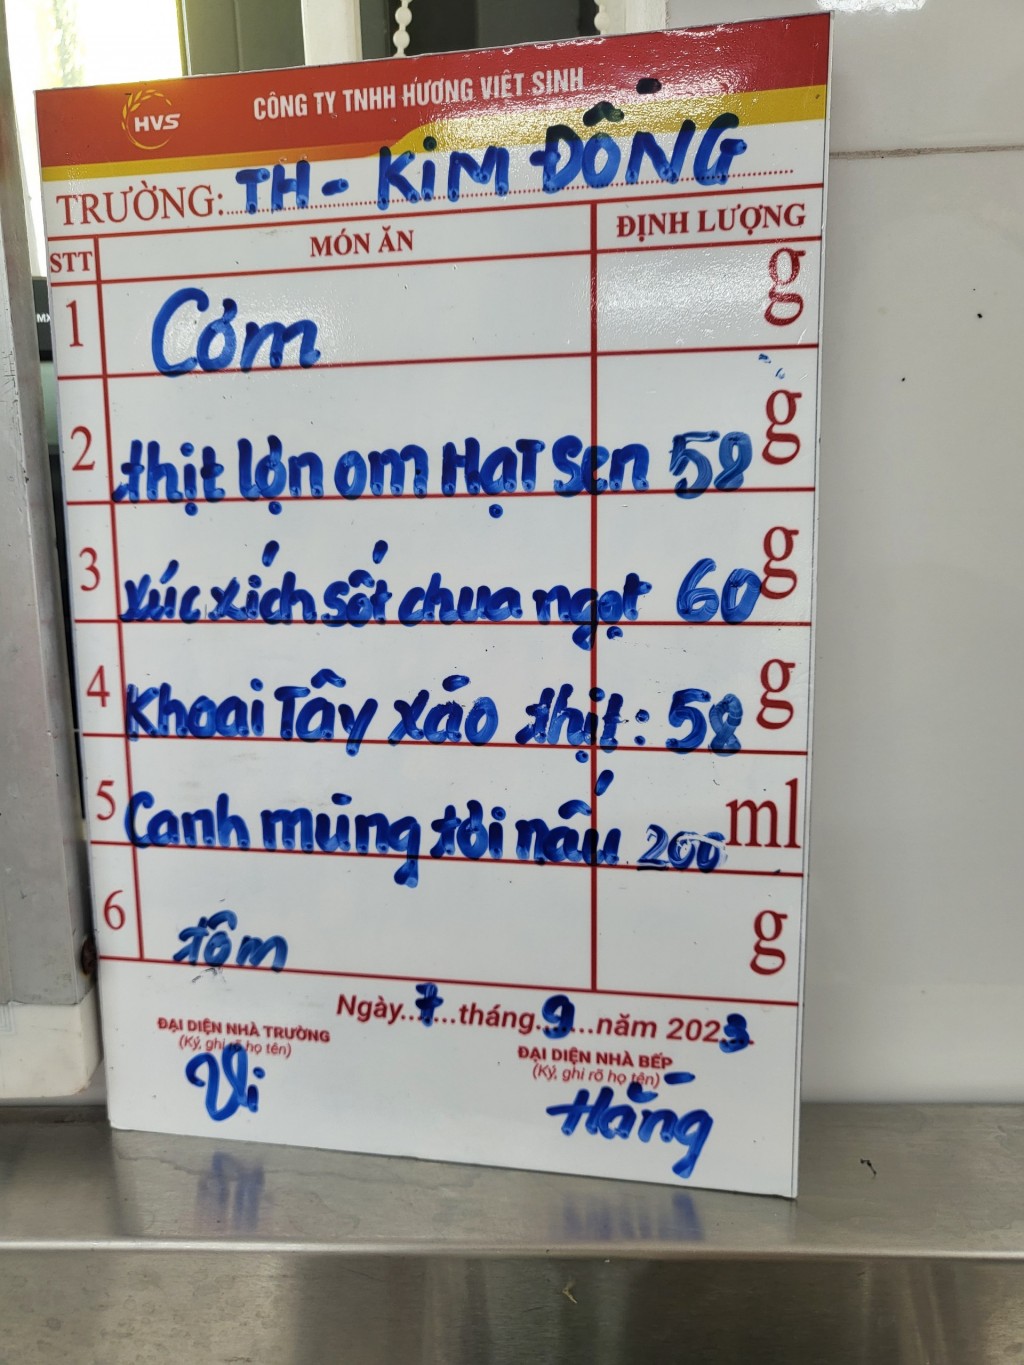 HVS
CÔNG TY TNHH HƯƠNG VIỆT SINH
TRƯỜNG: TH - KIM ĐỒNG
STT MÓN ĂN ĐỊNH LƯỢNG
1 Cơm g
2 thịt lợn om Hạt Sen 58 g
3 xúc xích sốt chua ngọt 60 g
4 Khoai Tây xáo thịt: 58 g
5 Canh mùng tơi nấu 200 ml
6 tôm g
Ngày..7...tháng..9...năm 2023
ĐẠI DIỆN NHÀ TRƯỜNG ĐẠI DIỆN NHÀ BẾP
(Ký, ghi rõ họ tên) (Ký, ghi rõ họ tên)
Vi Hằng